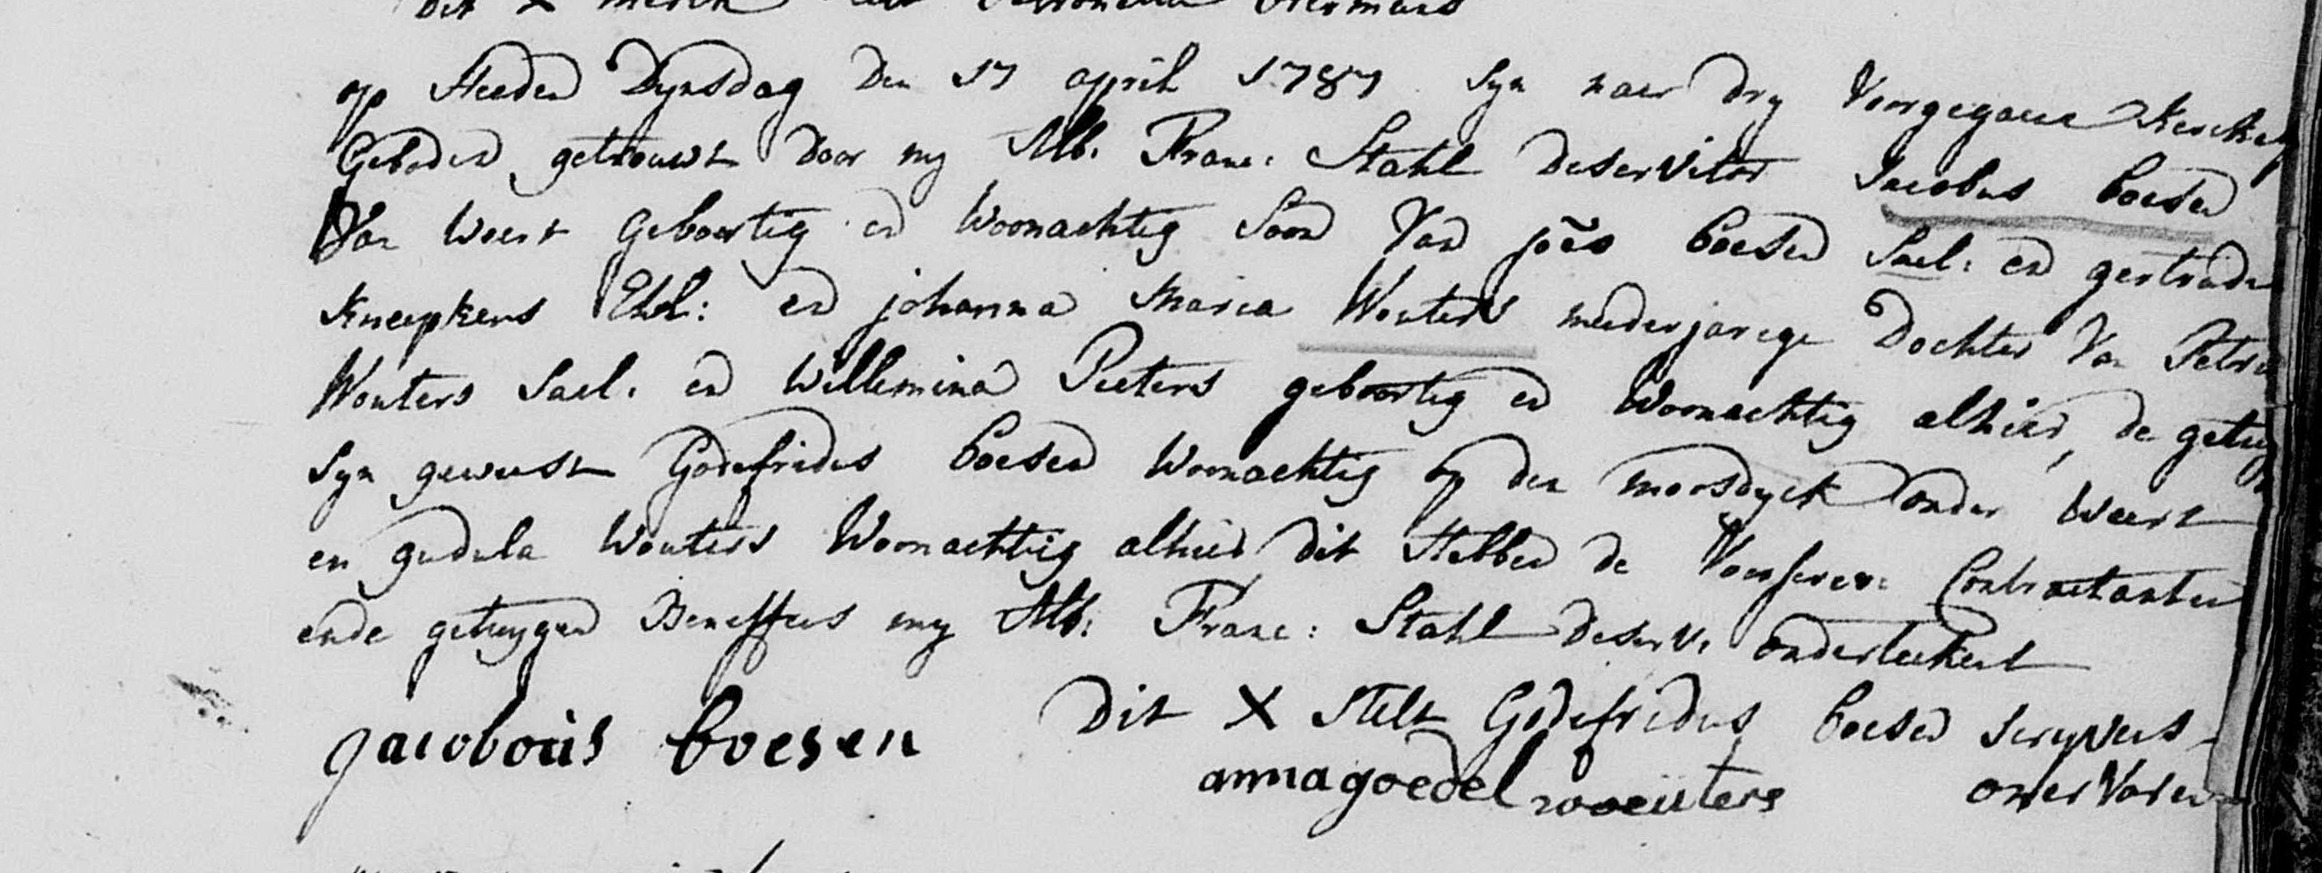 Dit X merck
op Heeden Dynsdag den 17 april 1787 syn naer dry Voorgegaene Kercken
Geboden getrouwt door my Alb. Franc: Stahl deservitor Jacobus boesen
Van Weert Geboortig en Woonachtig Soon Van joes boesen Sael: en gertrudis
Kneepkens Ehl: en johanna Maria Wouters minderjarige Dochter Van Petrus
Wouters Sael. en Willemina Peeters geboortig en Woonachtig alhier, de getuyg
syn geweest Godefridus boesen Woonachtig op den moosdyck onder Weert
en gudula Wouters Woonachtig alhier dit Hebben de Voorscreve: Contractanten
ende getuygen Beneffens my Alb: Franc: Stahl deserv: onderteekent
jacobous boesen Dit X stelt Godefridus boesen scryvens-
anna goedel woeuters onervaren